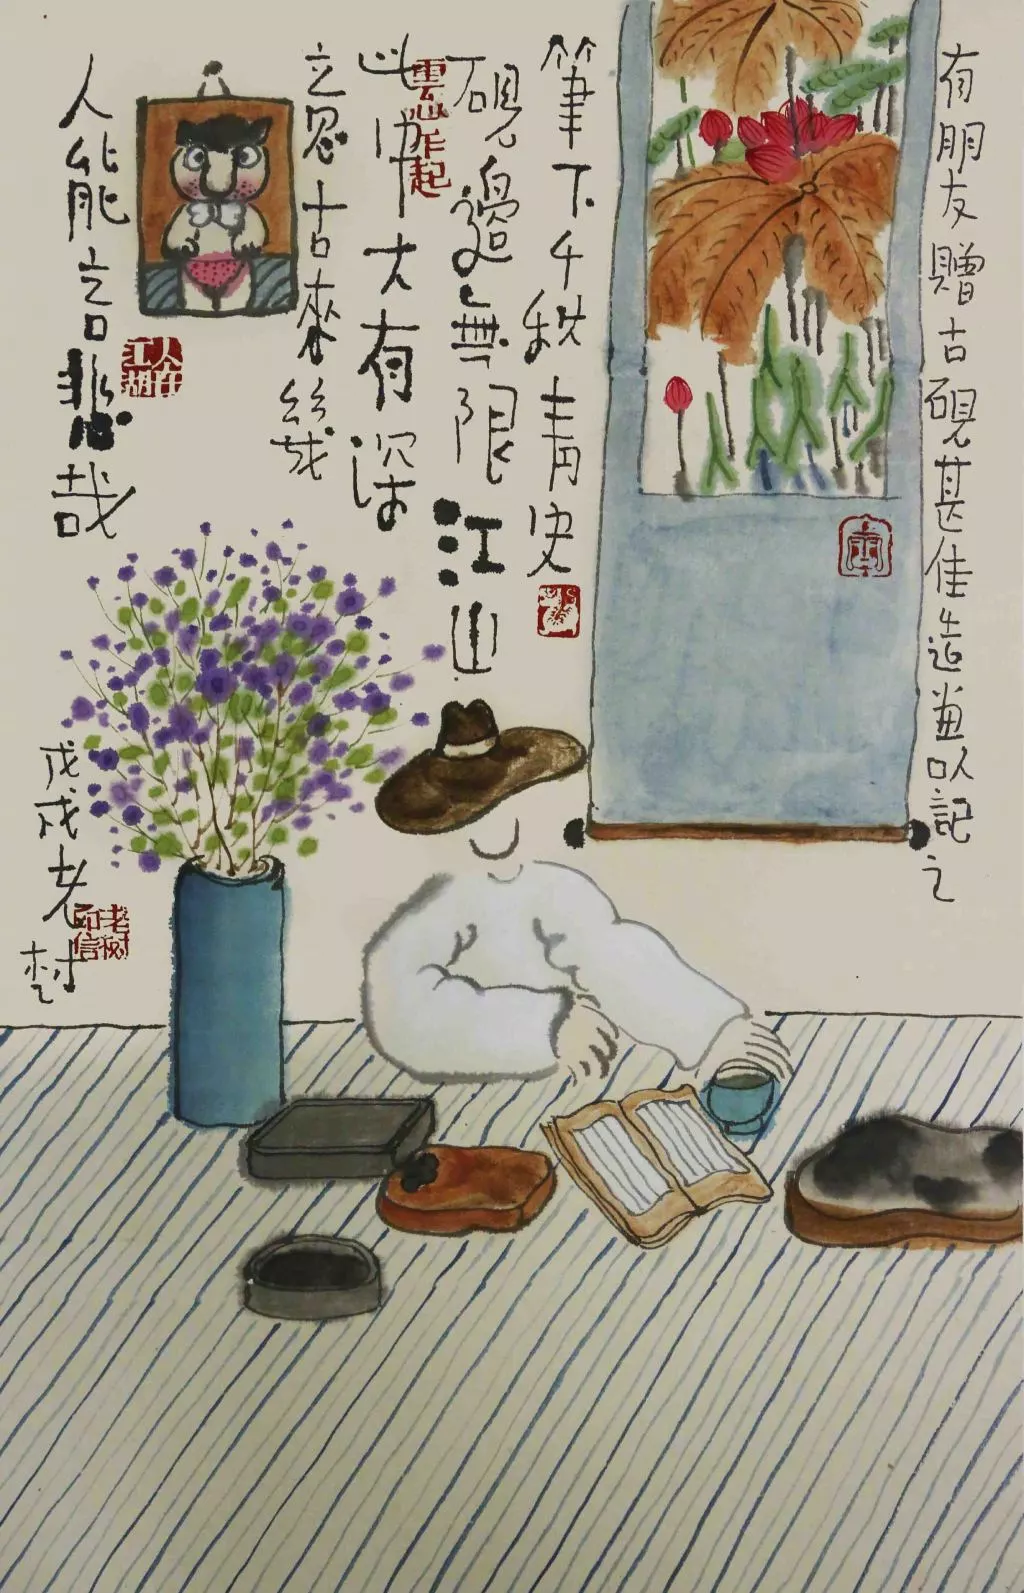 有朋友贈古硯甚佳造畫以記之
筆下千秋青史
硯邊無限江山
此中大有深
意古來幾
人能言悲哉
人在江湖
戊戌老树